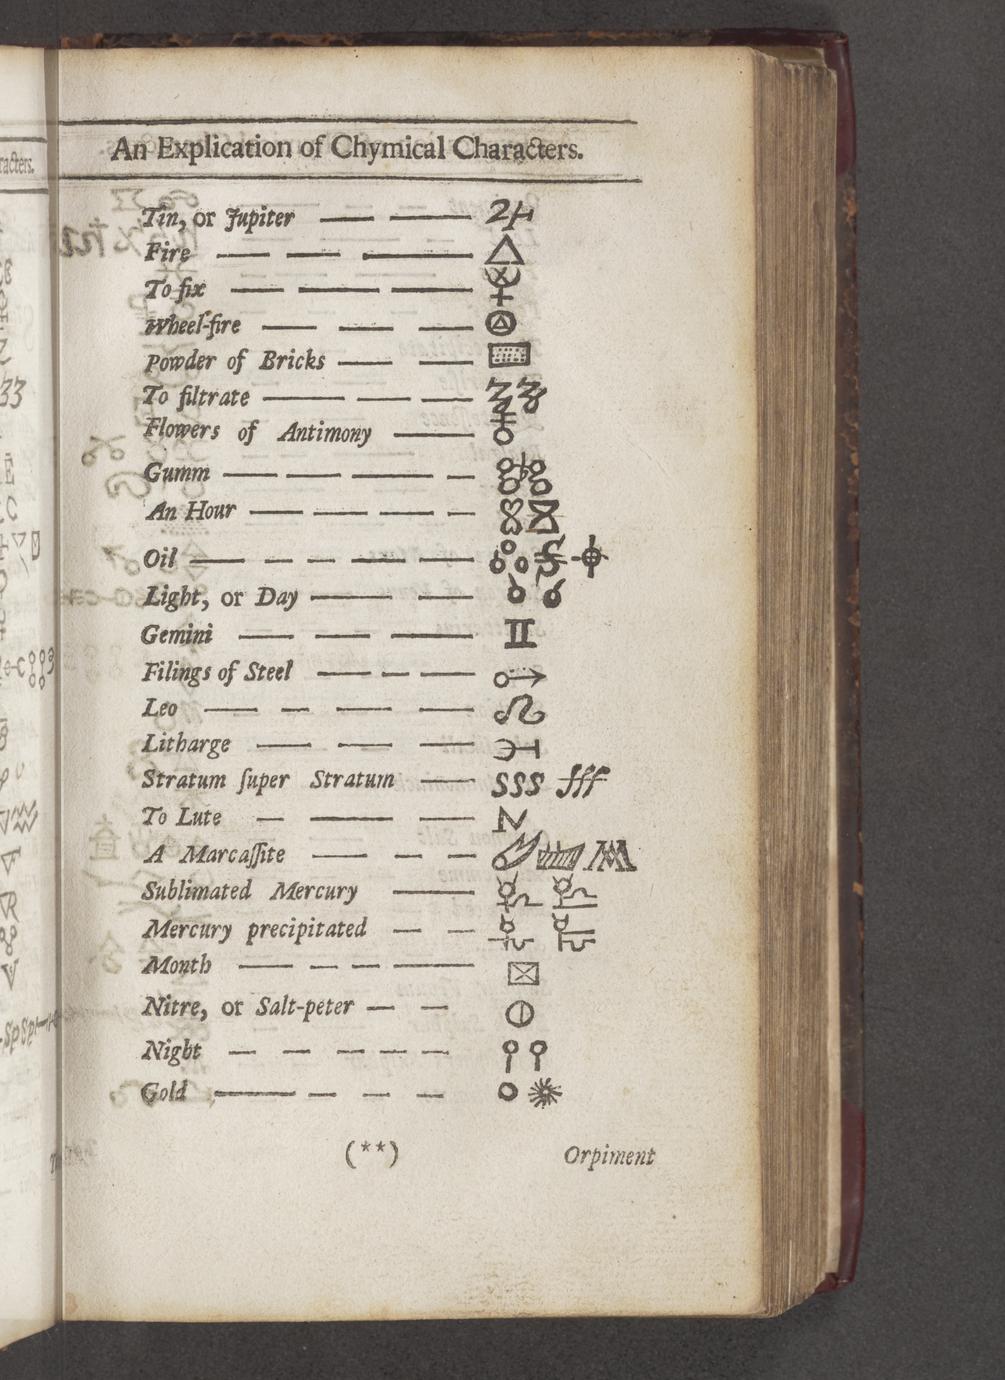 An Explication of Chymical Characters.
Tin, or Jupiter ♃
Fire 🜂
To fix
Wheel-fire
Powder of Bricks
To filtrate
Flowers of Antimony
Gumm
An Hour
Oil
Light, or Day
Gemini ♊
Filings of Steel
Leo ♌
Litharge
Stratum ſuper Stratum SSS ſſſ
To Lute
A Marcaſſite
Sublimated Mercury
Mercury precipitated
Month
Nitre, or Salt-peter
Night
Gold
(**)
Orpiment